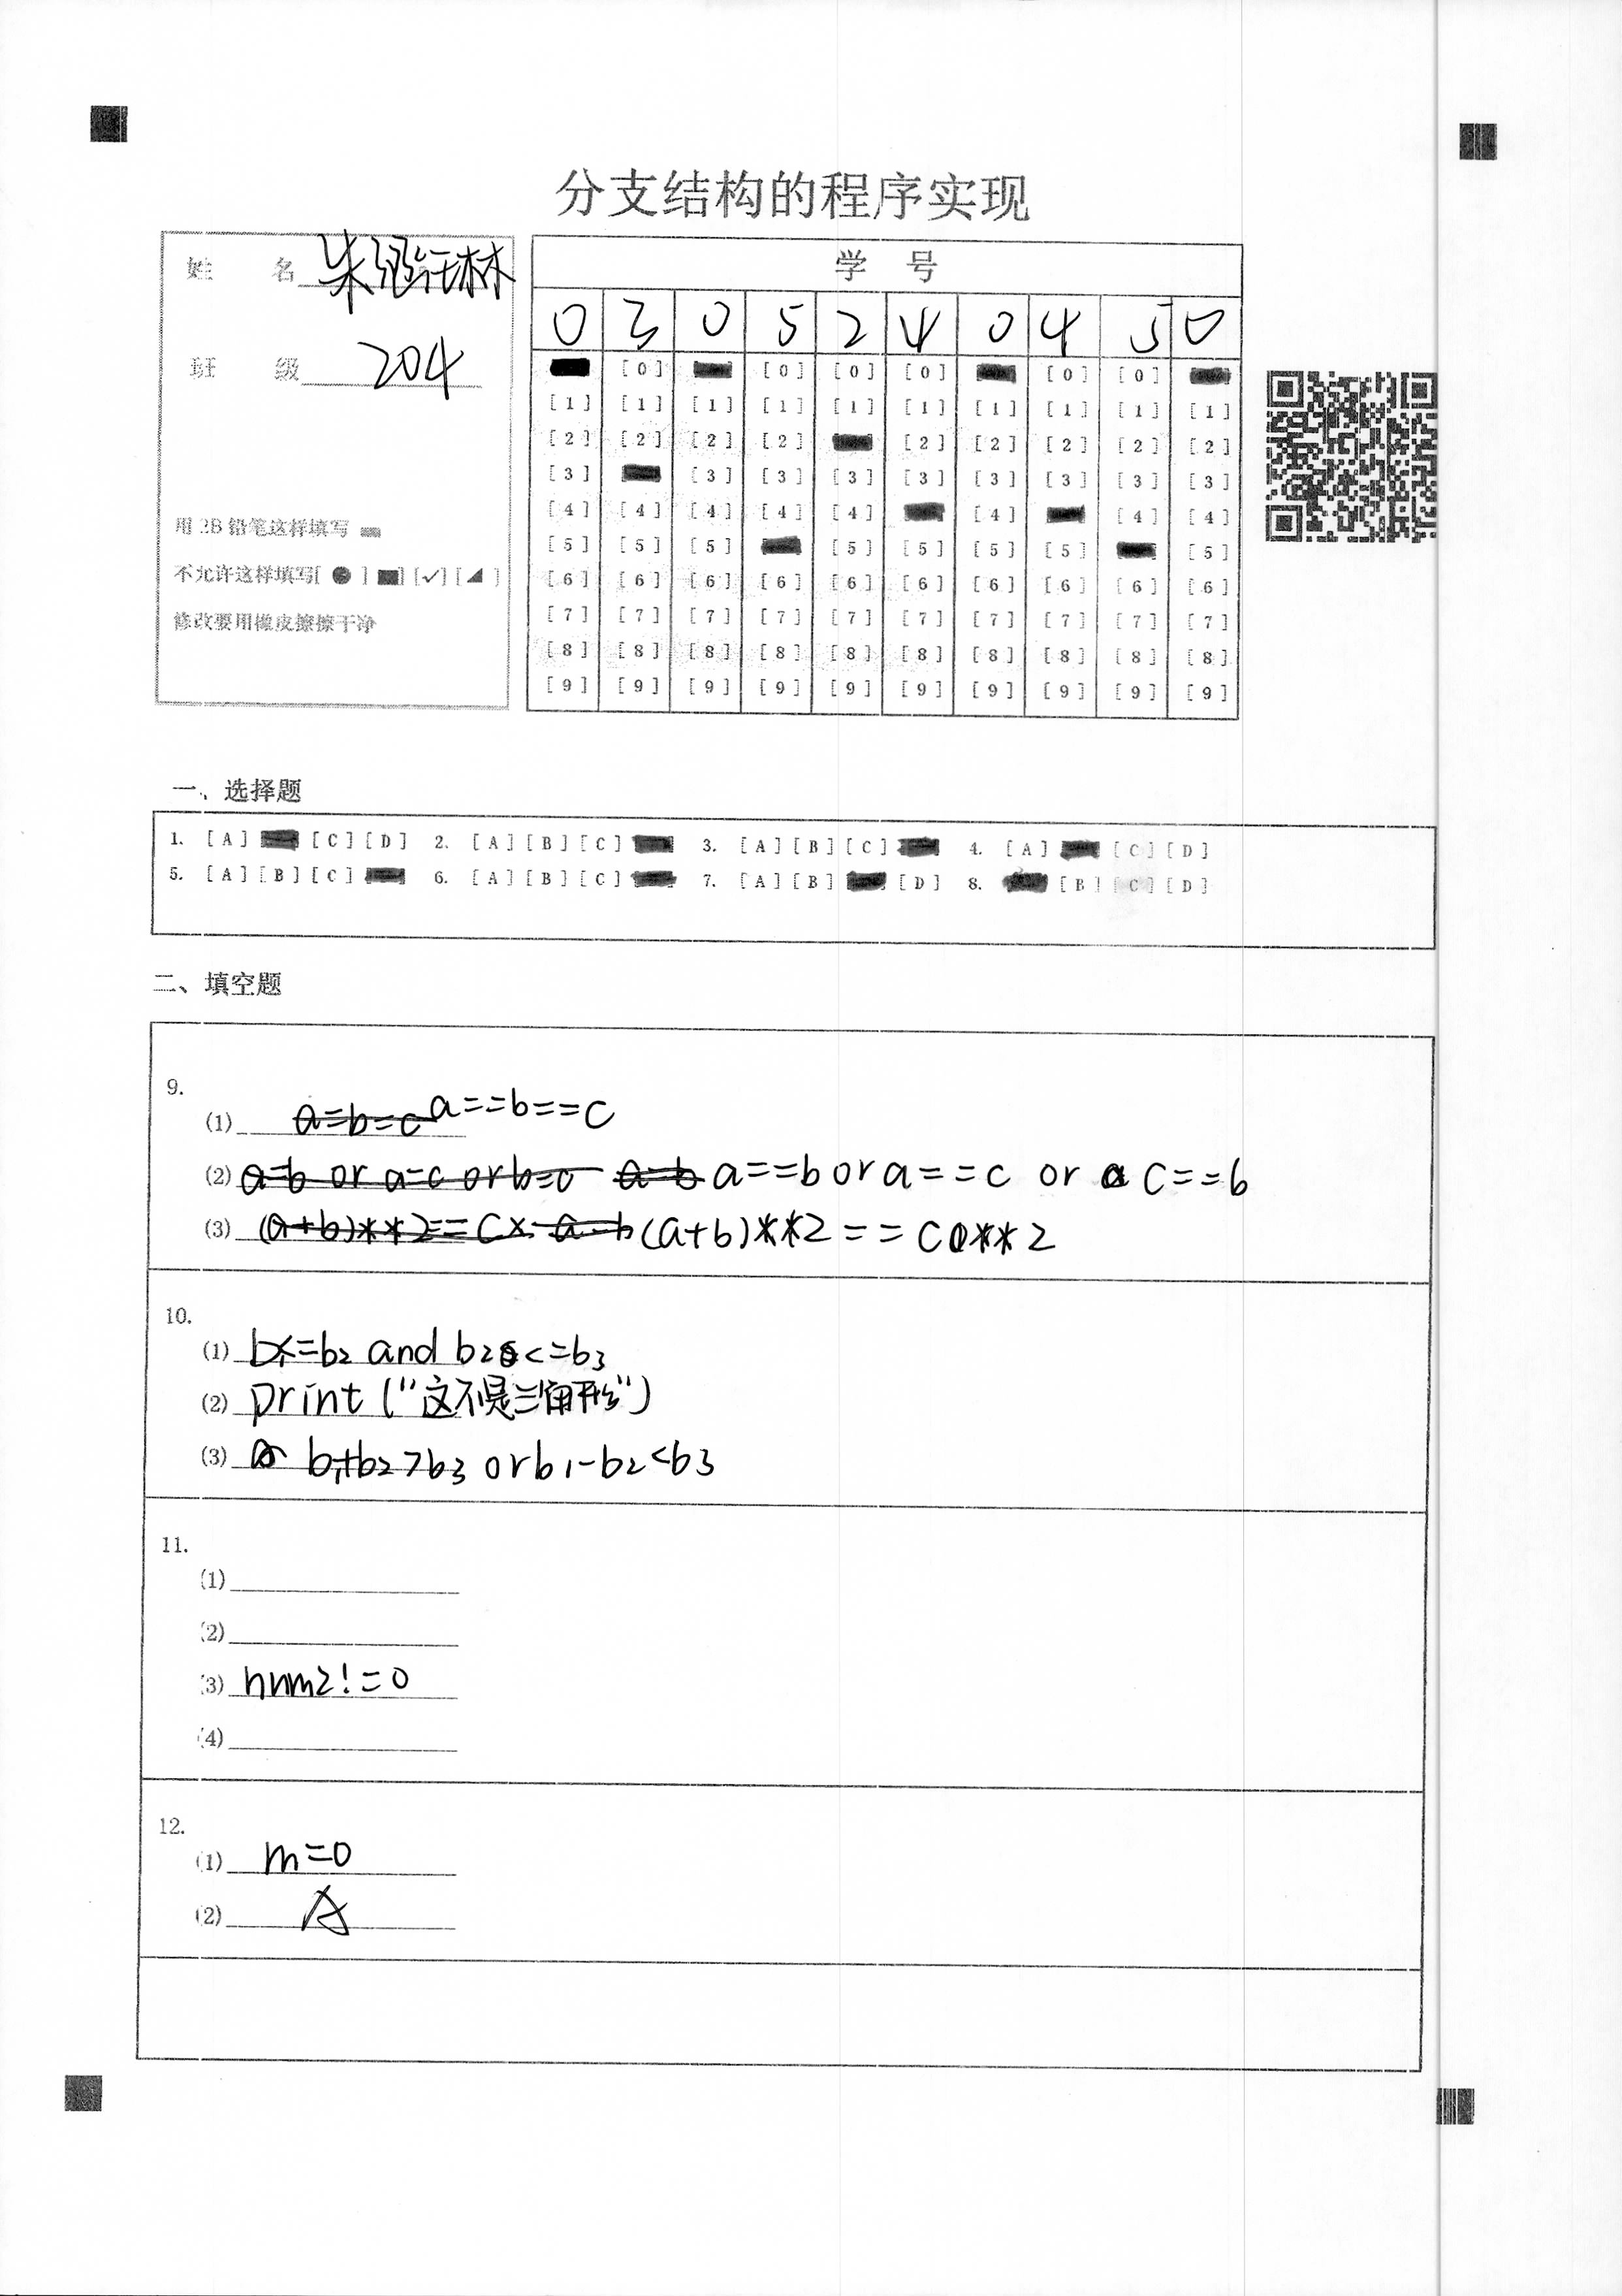 分支结构的程序实现
姓 名 朱
班 级 204
用 2B 铅笔这样填写
不允许这样填写[ ● ] [■] [✓] [◢ ]
修改要用橡皮擦擦干净
学 号
0 3 0 5 2 4 0 4 5 0
[0] [0] [0] [0] [0] [0]
[1] [1] [1] [1] [1] [1] [1] [1] [1] [1]
[2] [2] [2] [2] [2] [2] [2] [2] [2]
[3] [3] [3] [3] [3] [3] [3] [3] [3]
[4] [4] [4] [4] [4] [4] [4] [4]
[5] [5] [5] [5] [5] [5] [5] [5]
[6] [6] [6] [6] [6] [6] [6] [6] [6] [6]
[7] [7] [7] [7] [7] [7] [7] [7] [7] [7]
[8] [8] [8] [8] [8] [8] [8] [8] [8] [8]
[9] [9] [9] [9] [9] [9] [9] [9] [9] [9]
一、选择题
1. [A] [C] [D] 2. [A] [B] [C] 3. [A] [B] [C] 4. [A] [C] [D]
5. [A] [B] [C] 6. [A] [B] [C] 7. [A] [B] [D] 8. [B] [C] [D]
二、填空题
9.
(1) a=b=c a==b==c
(2) a=b or a=c or b=c a=b a==b or a==c or c==b
(3) (a+b)**2==c* a-b (a+b)**2==c**2
10.
(1) b1<=b2 and b2<=b3
(2) print("这不是三角形")
(3) b1+b2>b3 or b1-b2<b3
11.
(1)
(2)
(3) num2!=0
(4)
12.
(1) m=0
(2) A